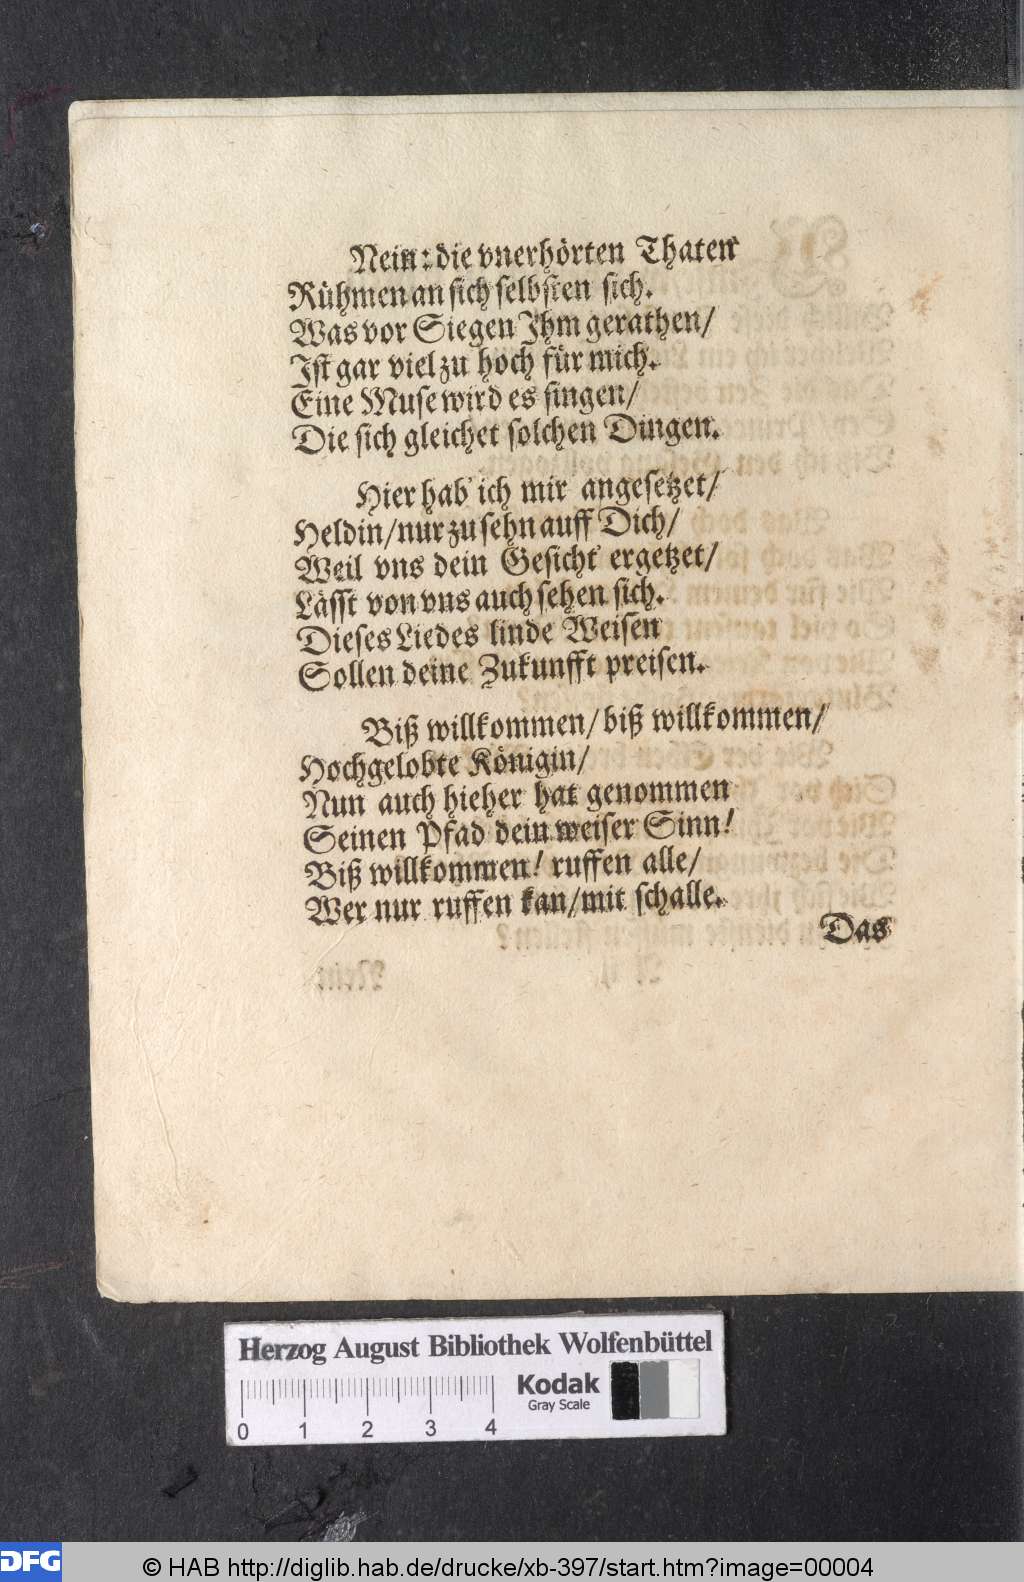 Nein: die vnerhörten Thaten
Rühmen an sich selbsten sich.
Was vor Siegen Jhm gerathen/
Jst gar viel zu hoch für mich.
Eine Muse wird es singen/
Die sich gleichet solchen Dingen.
Hier hab' ich mir angesetzet/
Heldin/nur zu sehn auff Dich/
Weil vns dein Gesicht' ergetzet/
Lässt von vns auch sehen sich.
Dieses Liedes linde Weisen
Sollen deine Zukunfft preisen.
Biß willkommen/ biß willkommen/
Hochgelobte Königin/
Nun auch hieher hat genommen
Seinen Pfad dein weiser Sinn!
Biß willkommen! ruffen alle/
Wer nur ruffen kan/mit schalle.
Das
Herzog August Bibliothek Wolfenbüttel
Kodak
Gray Scale
0 1 2 3 4
DFG
© HAB http://diglib.hab.de/drucke/xb-397/start.htm?image=00004